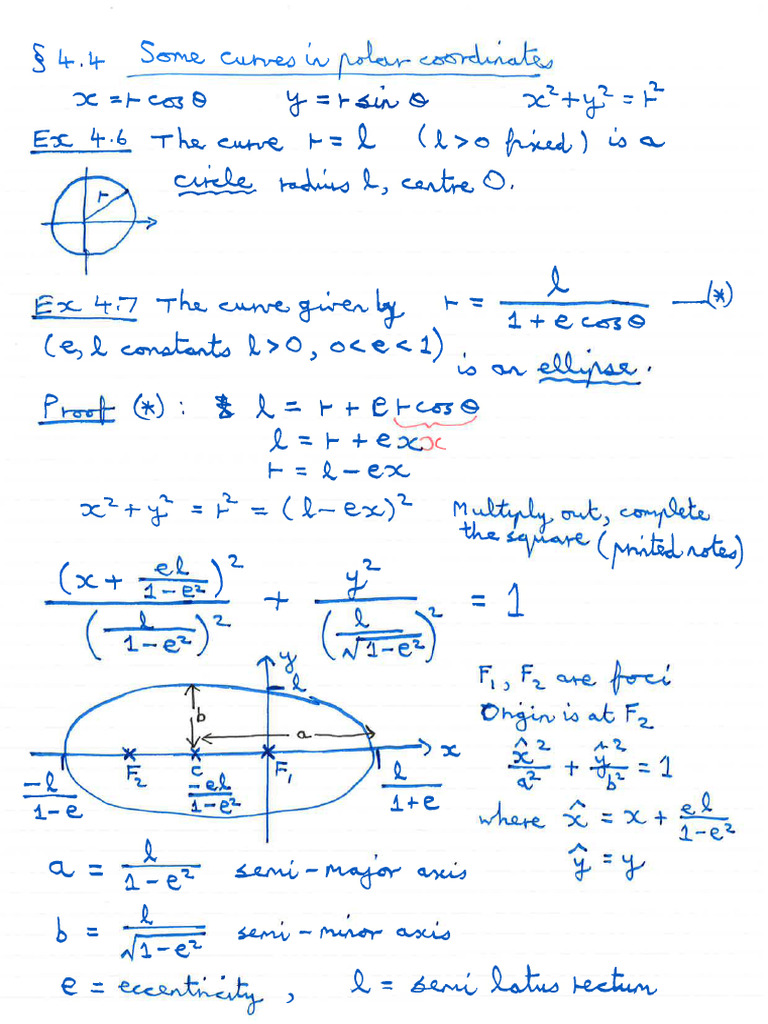 § 4.4 Some curves in polar coordinates
x = r cos θ y = r sin θ x² + y² = r²
Ex 4.6 The curve r = l (l > 0 fixed) is a
circle radius l, centre O.
r
Ex 4.7 The curve given by r = l / (1 + e cos θ) —(*)
(e, l constants l > 0, 0 < e < 1)
is an ellipse.
Proof (*) : l = r + e r cos θ
l = r + e x x
r = l - ex
x² + y² = r² = (l - ex)² Multiply out, complete
the square (printed notes)
(x + el/(1 - e²))² / (l/(1 - e²))² + y² / (l/√(1 - e²))² = 1
y
l
b
a
x
F₂ C F₁
-l/(1 - e) -el/(1 - e²) l/(1 + e)
F₁, F₂ are foci
Origin is at F₂
x̂²/a² + ŷ²/b² = 1
where x̂ = x + el/(1 - e²)
ŷ = y
a = l/(1 - e²) semi-major axis
b = l/√(1 - e²) semi-minor axis
e = eccentricity, l = semi latus rectum